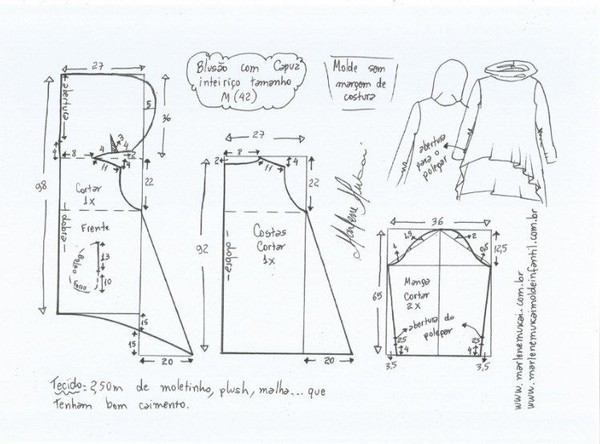 27
Blusão com Capuz
inteiriço tamanho
M (42)
Molde sem
margem de
costura
abertura
5
36
3
4
4
8
4
11
22
98
Cortar
1x
dobra
Frente
Bolso
13
10
15
15
20
27
8
2
4
11
22
92
Costas
Cortar
1x
dobra
20
Marlene Mukai
abertura
para o
polegar
36
1,5
2
1
0,5
12,5
65
Manga
Cortar
2x
abertura do
polegar
2,5
4
3,5
2,5
4
3,5
www.marlenemukai.com.br
www.marlenemukaimoldeinfantil.com.br
Tecido: 2,50m de moletinho, plush, malha... que
tenham bom caimento.